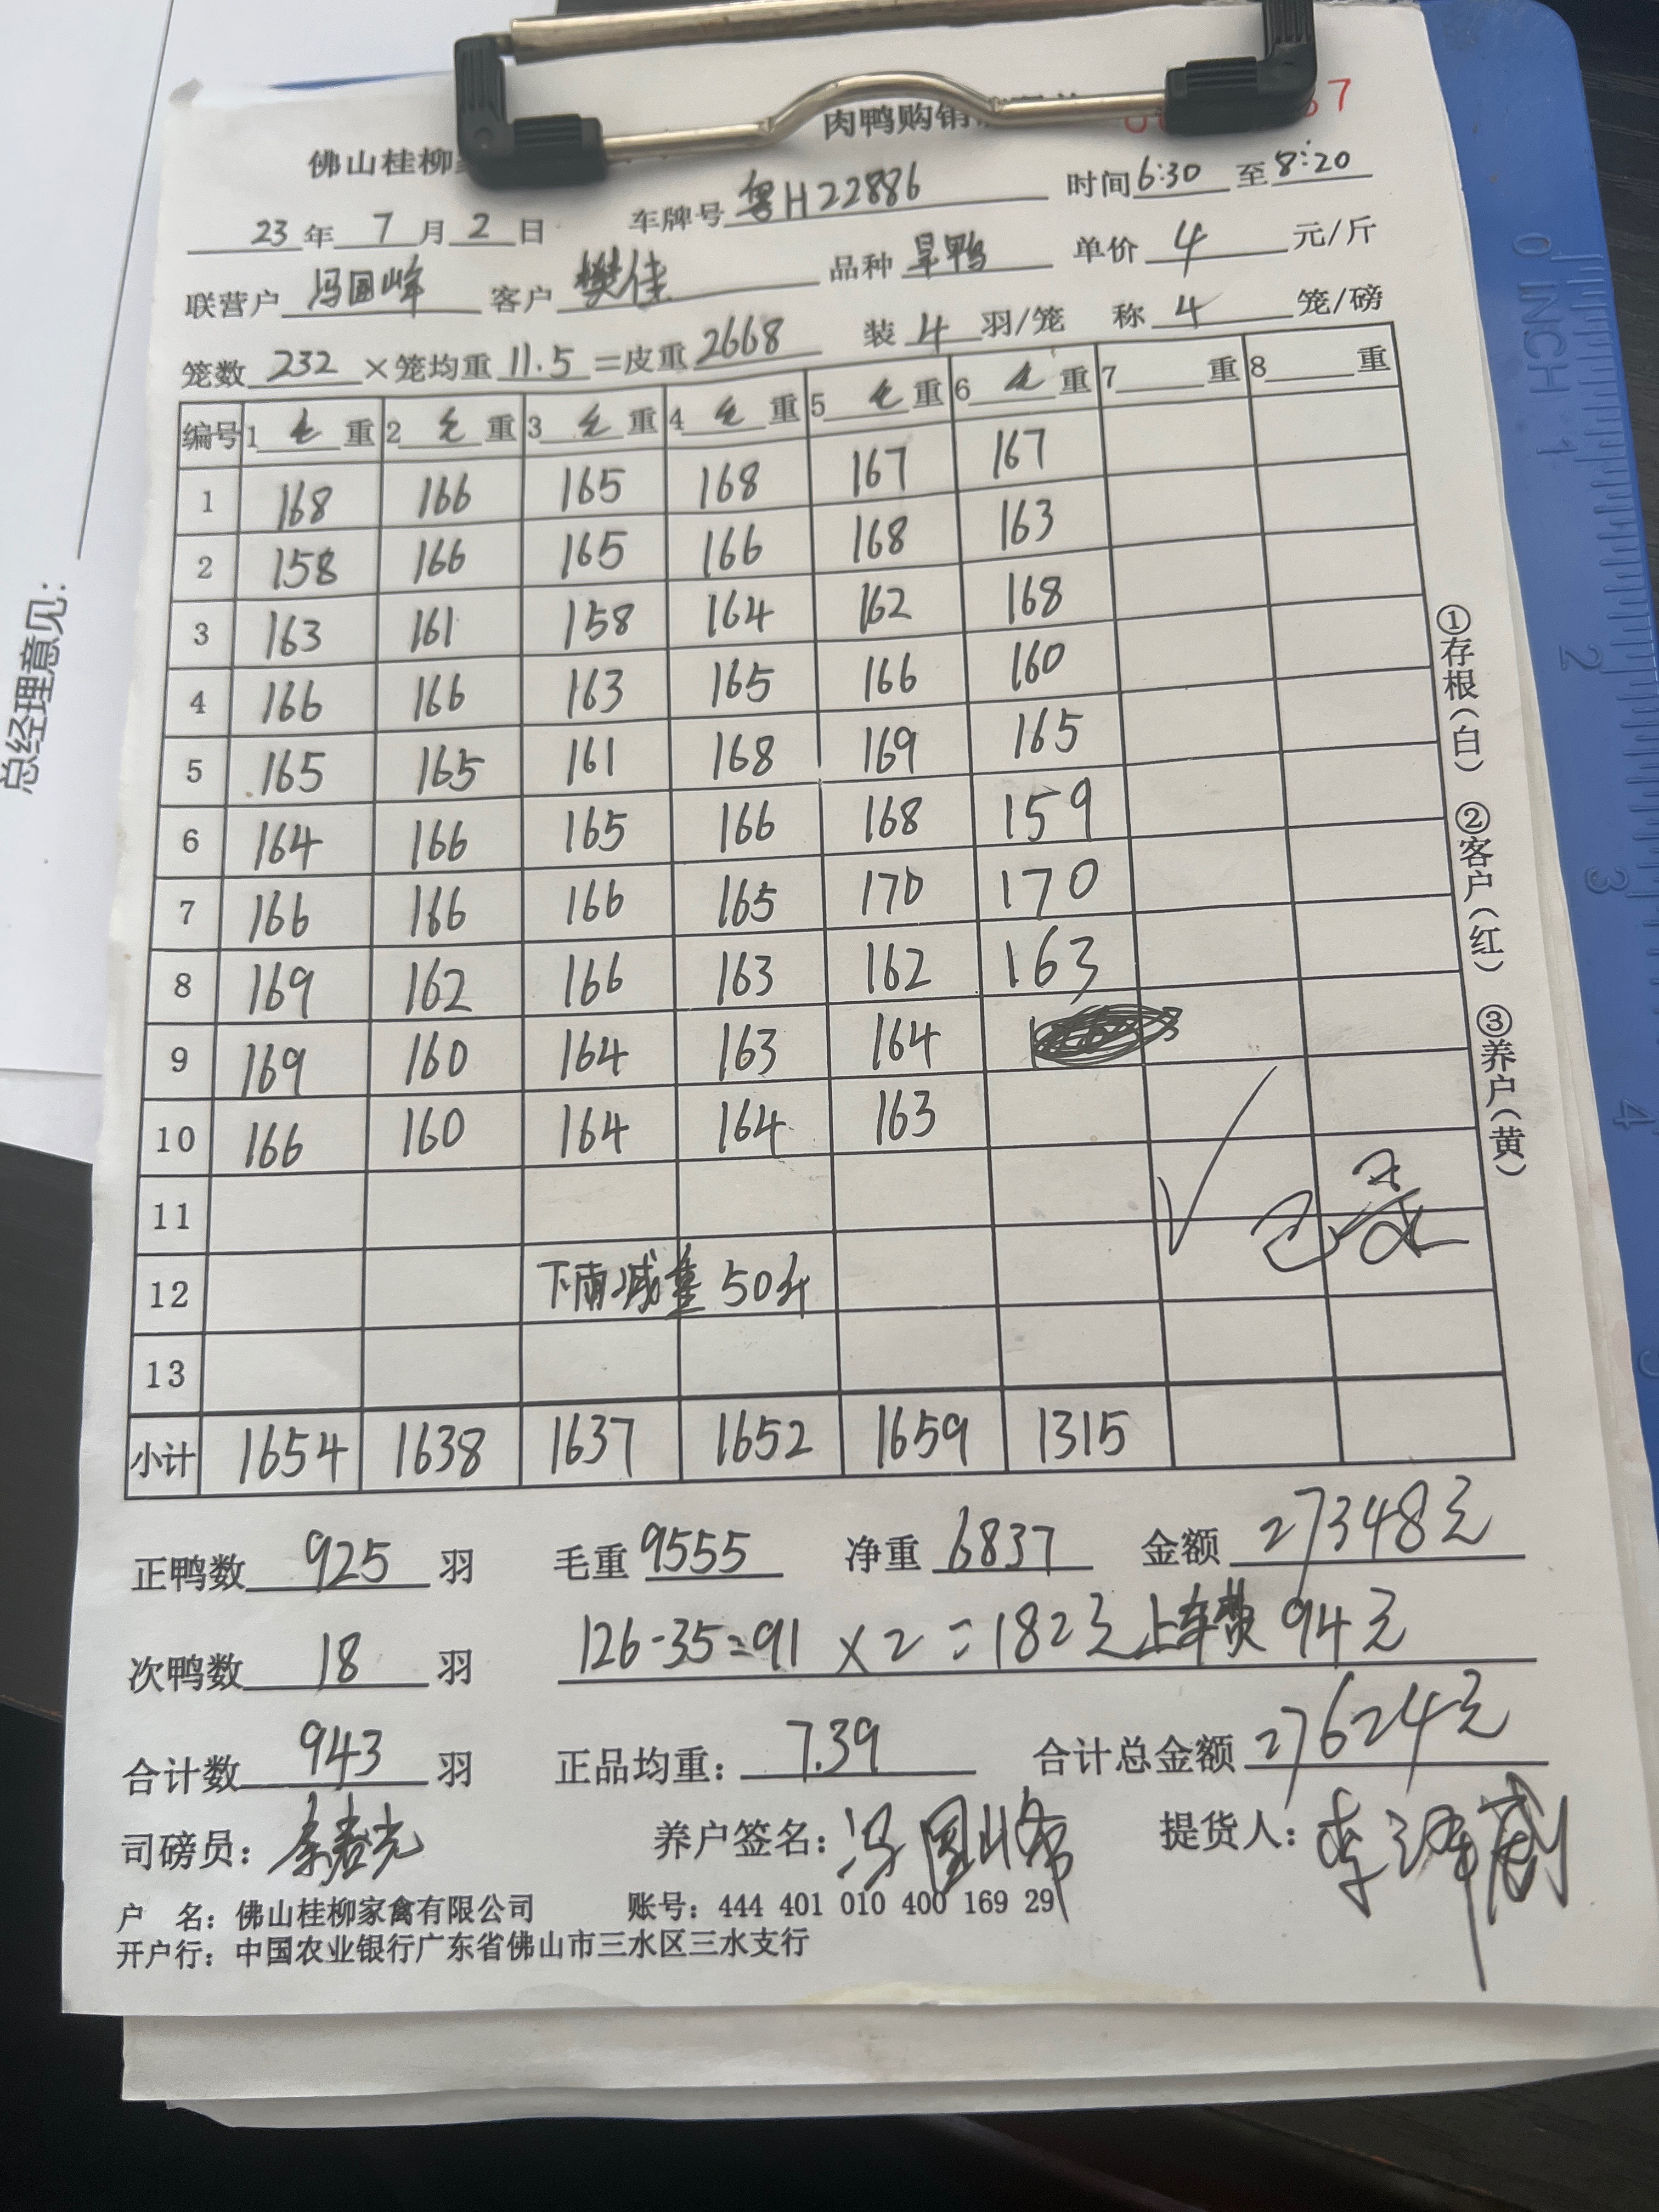 佛山桂柳 肉鸭购销 7
23年7月2日 车牌号粤H22886 时间6:30至8:20
联营户冯国峰 客户樊佳 品种旱鸭 单价4元/斤
笼数232×笼均重11.5=皮重2668 装4羽/笼 称4笼/磅
编号 1毛重 2毛重 3毛重 4毛重 5毛重 6毛重 7重 8重
1 168 166 165 168 167 167
2 158 166 165 166 168 163
3 163 161 158 164 162 168
4 166 166 163 165 166 160
5 165 165 161 168 169 165
6 164 166 165 166 168 159
7 166 166 166 165 170 170
8 169 162 166 163 162 163
9 169 160 164 163 164
10 166 160 164 164 163
11
12 下雨减重50斤
13
已录
小计 1654 1638 1637 1652 1659 1315
正鸭数925羽 毛重9555 净重6837 金额27348元
次鸭数18羽 126-35=91×2=182元上车费94元
合计数943羽 正品均重：7.39 合计总金额27624元
司磅员： 养户签名：冯国峰 提货人：
户 名：佛山桂柳家禽有限公司 账号：444 401 010 400 169 29
开户行：中国农业银行广东省佛山市三水区三水支行
①存根（白） ②客户（红） ③养户（黄）
总经理意见：
0 INCH 1 2 3 4